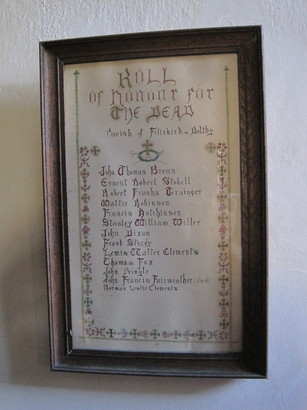 ROLL
of Honour for
The Dead
Parish of Felixkirk w. Boltby
John Thomas Brown
Ernest Robert Stokell
Robert Franks Grainger
Walter Robinson
Francis Hutchinson
Stanley William Willee
John Dixon
Frank Sturdy
Lewin Walter Clements
Thomas Fox
John Pringle
John Francis Fairweather
Norman Leslie Clements